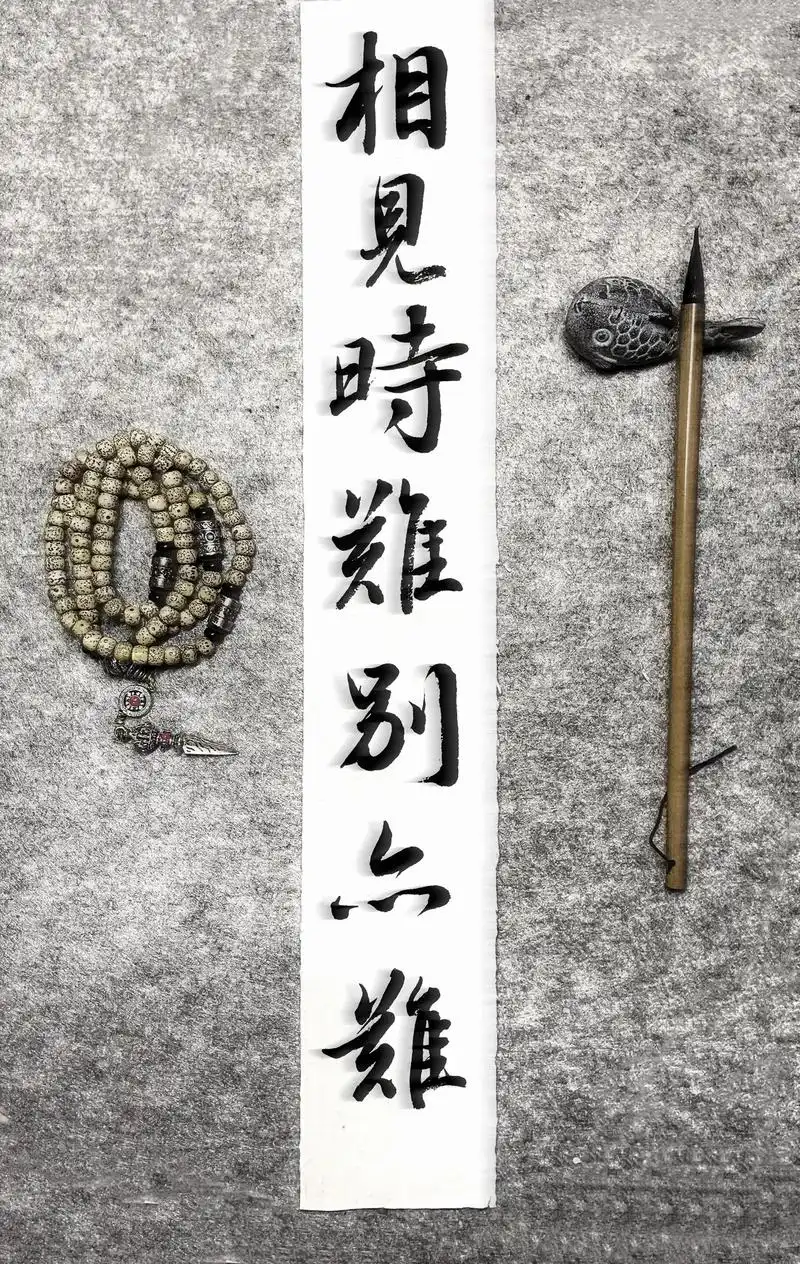 相見時難别亦難